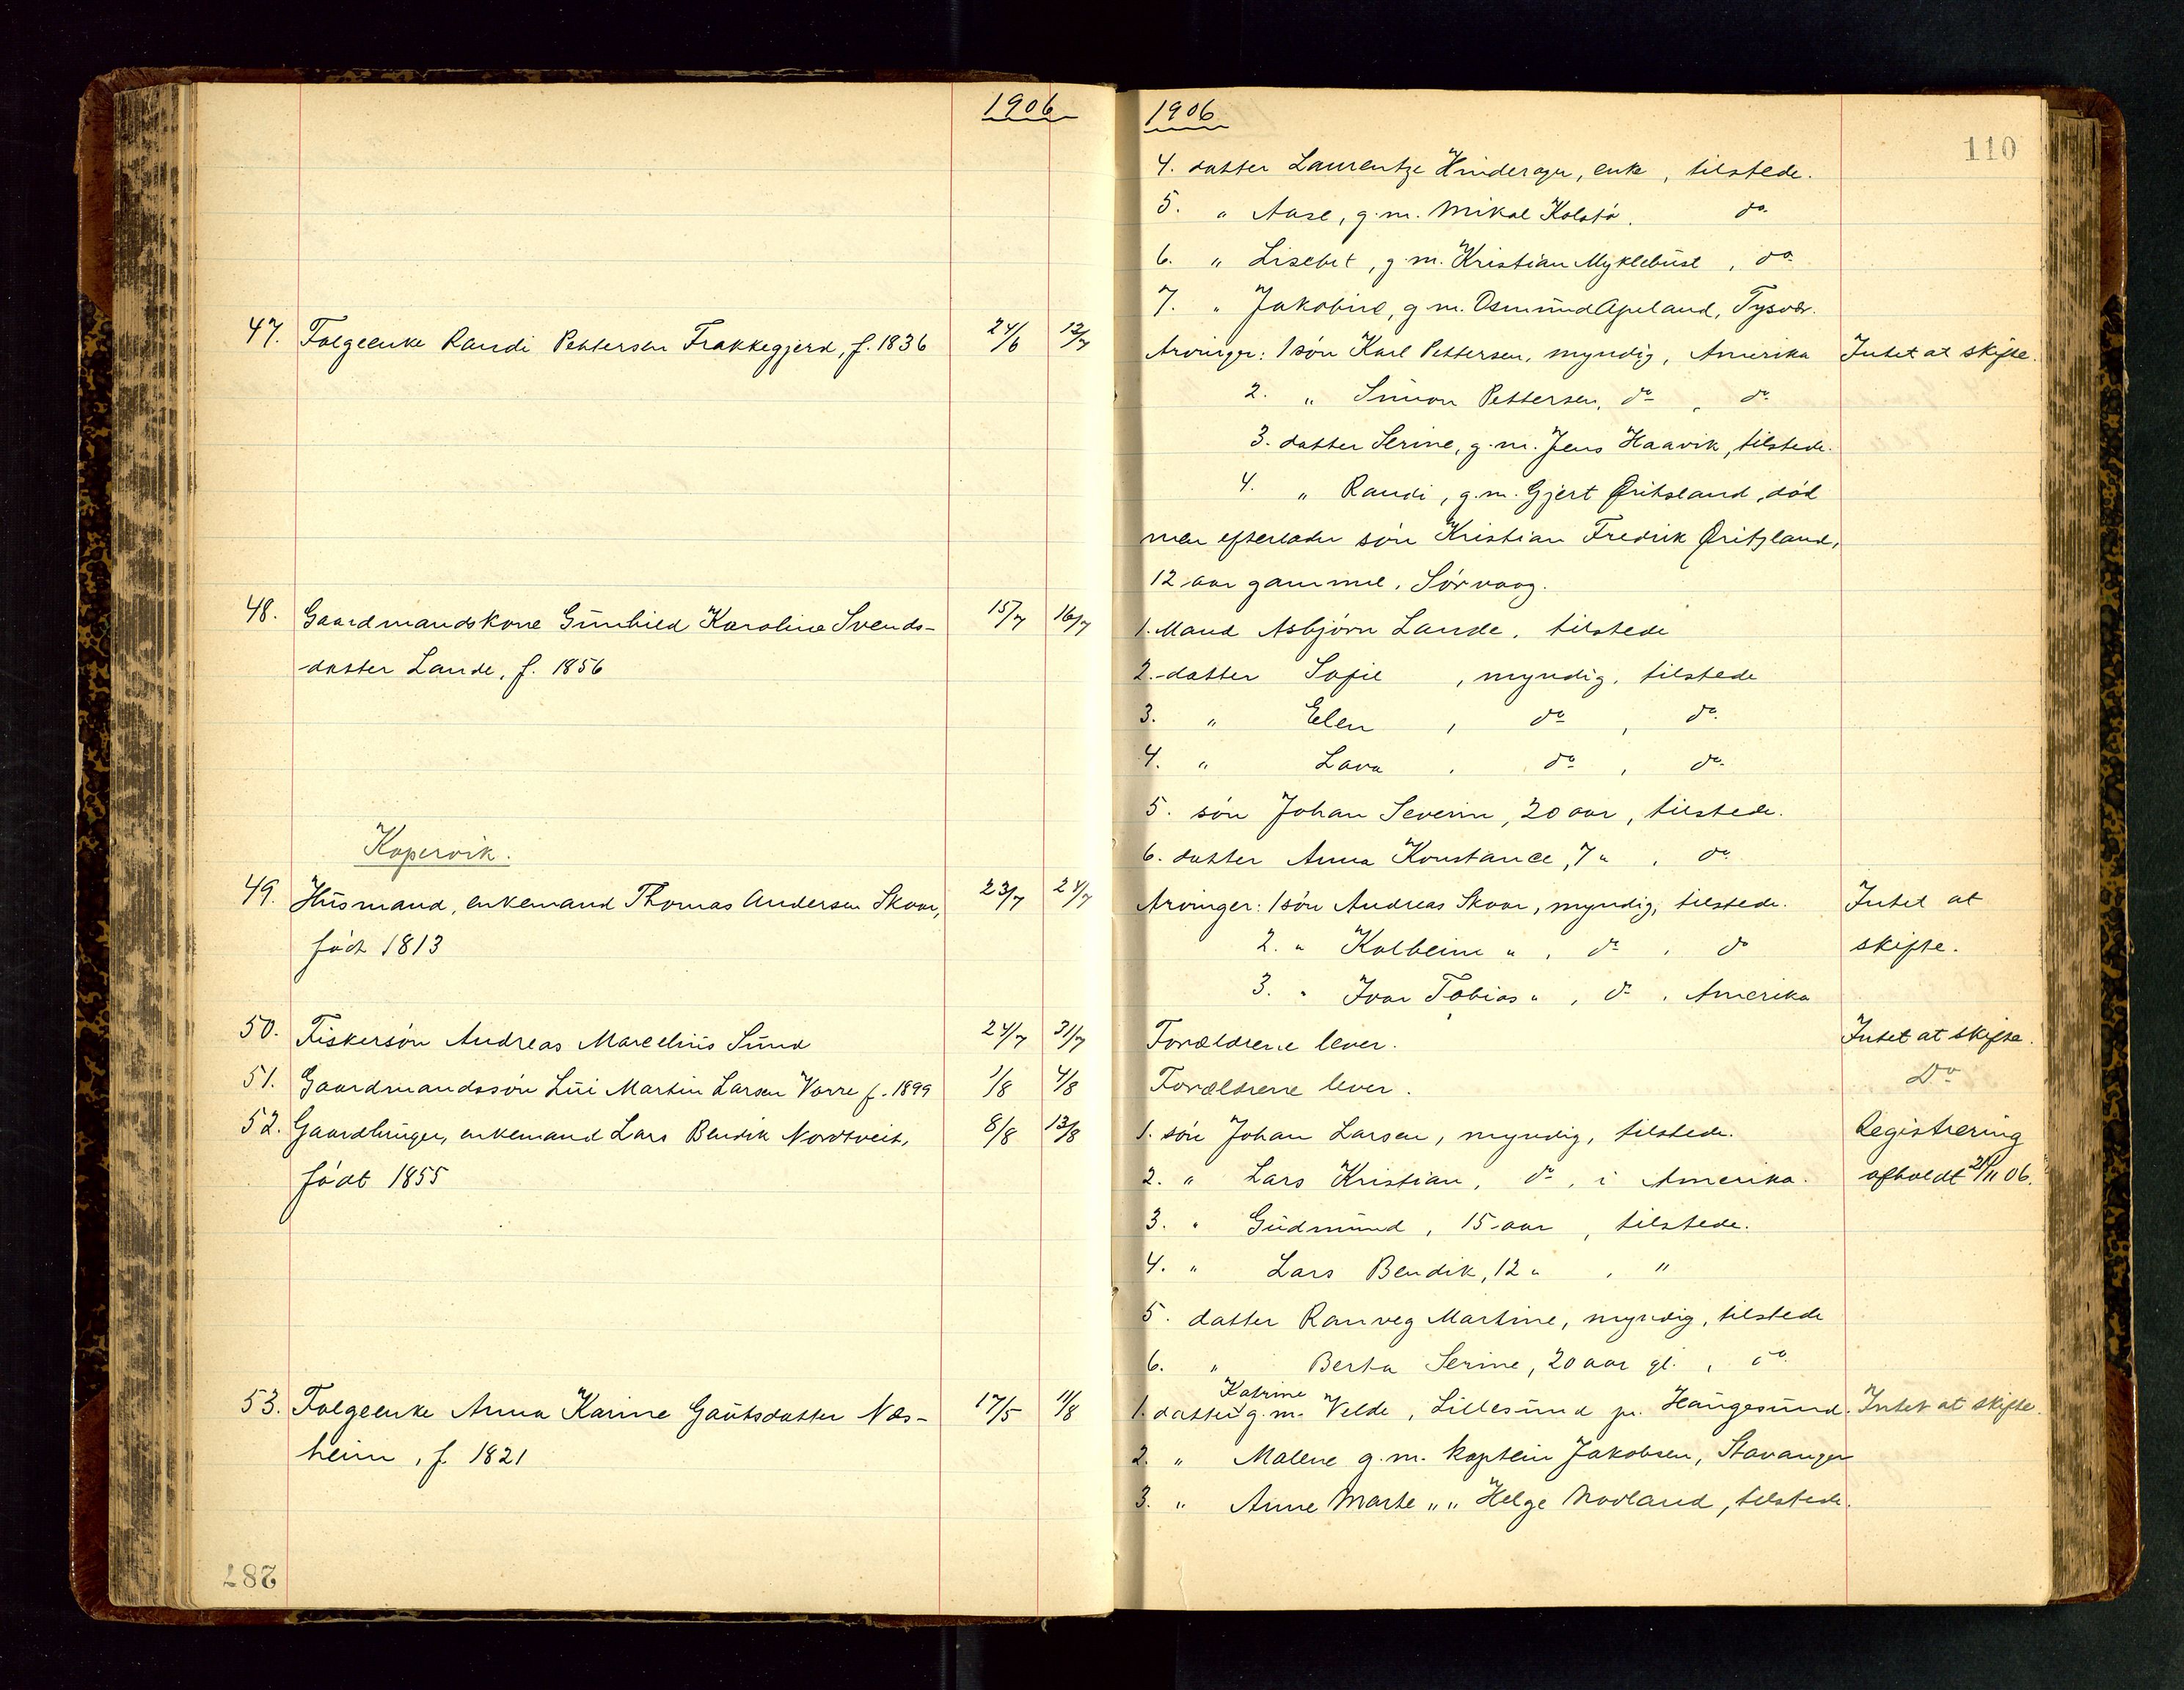 1906
47. Folgeenke Randi Pettersen Frakkegjerd, f. 1836 24/6 12/7
48. Gaardmandskone Gunhild Karoline Svends-
datter Lande, f. 1856 15/7 16/7
Kopervik.
49. Husmand, enkemand Thomas Andersen Skaar, 23/7 24/7
født 1813
50. Fiskersøn Andreas Marcelius Sund 24/7 31/7
51. Gaardmandssøn Lui Martin Larsen Vorre f. 1899 1/8 4/8
52. Gaardbruger, enkemand Lars Bendik Nordtveit, 8/8 13/8
født 1855
53. Folgeenke Anna Karine Gautsdatter Næs- 17/5 11/8
heim, f. 1821
287
1906
110
4. datter Laurentze Hinderager, enke, tilstede.
5. " Aase, g. m. Mikal Kolstø. do.
6. " Lisebet, g. m. Kristian Myklebust, do.
7. " Jakobine, g. m. Osmund Apeland, Tysvær.
Arvinger: 1 søn Karl Pettersen, myndig, Amerika Intet at skifte.
2. " Simon Pettersen, do, do.
3. datter Serine, g. m. Jens Haavik, tilstede.
4. " Randi, g. m. Gjert Øritsland, død
men efterlader søn Kristian Fredrik Øritsland,
12 aar gammel, Sørvaag.
1. Mand Asbjørn Lande, tilstede
2. datter Sofie, myndig, tilstede
3. " Elen, do, do.
4. " Lava, do, do.
5. søn Johan Severin, 20 aar, tilstede.
6. datter Anna Konstance, 7 ", do.
Arvinger: 1 søn Andreas Skaar, myndig, tilstede. Intet at
2. " Kolbein ", do, do skifte.
3. " Ivar Tobias ", do, Amerika
Forældrene lever. Intet at skifte.
Forældrene lever. Do
1. søn Johan Larsen, myndig, tilstede. Registrering
2. " Lars Kristian, do, i Amerika. afholdt 21/11 06.
3. " Gudmund, 15 aar, tilstede.
4. " Lars Bendik, 12 ", "
5. datter Ranveg Martine, myndig, tilstede
6. " Berta Serine, 20 aar gl., do.
1. datter Katrine g. m. Velde, Lillesund pr. Haugesund. Intet at skifte.
2. " Malene g. m. kaptein Jakobsen, Stavanger
3. " Anne Marte " " Helge Nodland, tilstede.